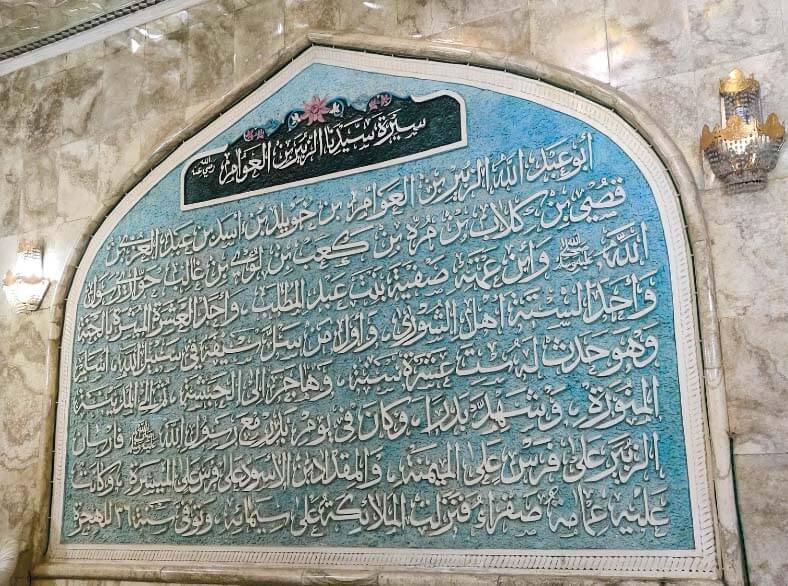 سيرة سيدنا الزبير بن العوام رضي الله عنه
أبو عبد الله الزبير بن العوام بن خويلد بن أسد بن عبد العزى بن
قصي بن كلاب بن مرة بن كعب بن لؤي بن غالب حواري رسول
الله ﷺ وابن عمته صفية بنت عبد المطلب، وأحد العشرة المبشرة بالجنة
وأحد الستة أهل الشورى، وأول من سل سيفه في سبيل الله، أسلم
وهو حدث له ست عشرة سنة، وهاجر الى الحبشة، ثم الى المدينة
المنورة، وشهد بدرا، وكان في يوم بدر مع رسول الله ﷺ فارسان
الزبير على فرس على الميمنة، والمقداد بن الأسود على فرس على الميسرة، وكانت
عليه عمامة صفراء فنزلت الملائكة على سيمائه، وتوفي سنة ٣٦ للهجرة